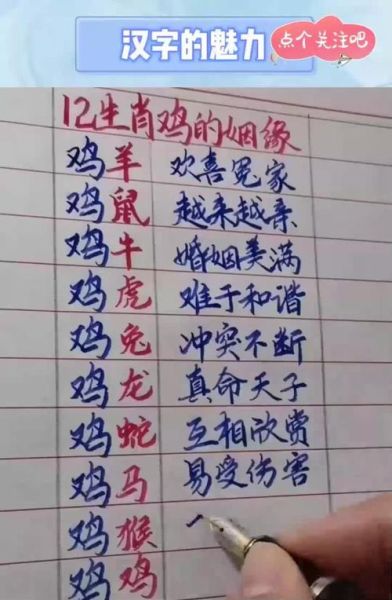 汉字的魅力
点个关注吧
12生肖鸡的姻缘
鸡羊 欢喜冤家
鸡鼠 越来越亲
鸡牛 婚姻美满
鸡虎 难于和谐
鸡兔 冲突不断
鸡龙 真命天子
鸡蛇 互相欣赏
鸡马 易受伤害
鸡猴
鸡鸡